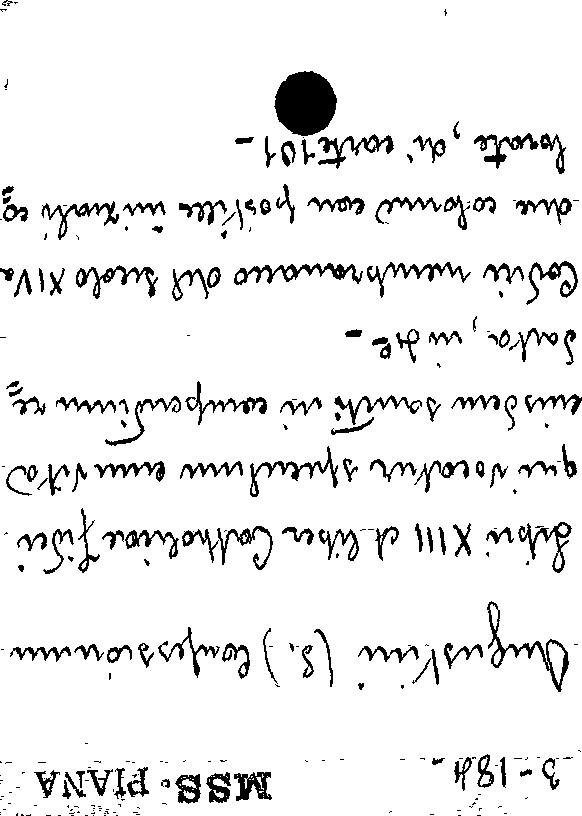 3-184- MSS. PIANA
Augustini (S.) Confessionum
Libri XIII et liber Catholicae fidei
qui vocatur speculum cum vita
eiusdem sancti in compendium re=
dacta, in 4º-
Codice membranaceo del secolo XIV a
due colonne con postille iniziali co=
lorate, di carte 101-